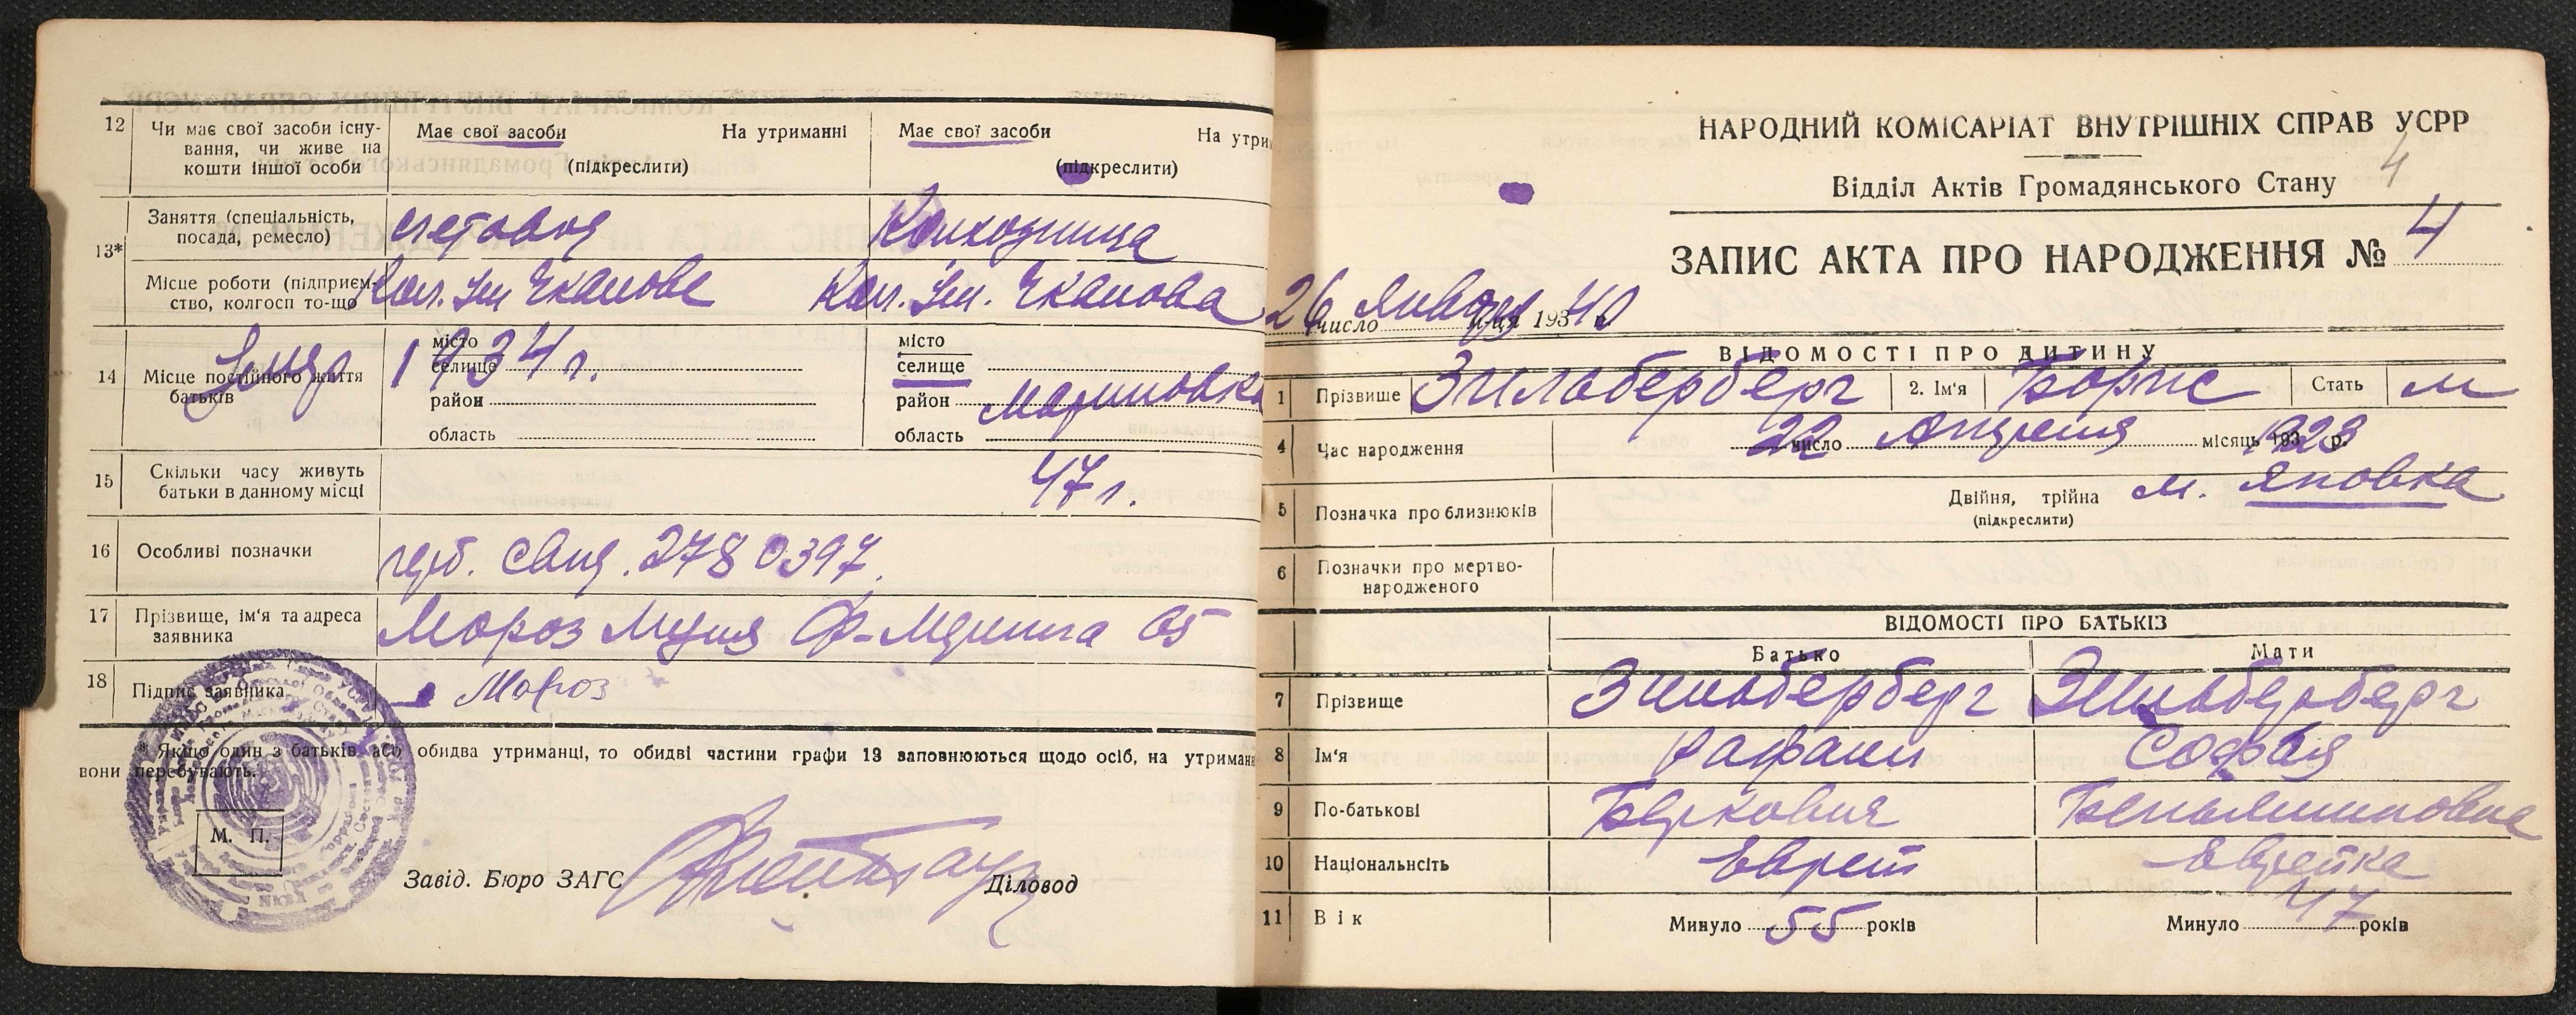 12
Чи має свої засоби існу-
вання, чи живе на
кошти іншої особи
Має свої засоби
На утриманні
(підкреслити)
Має свої засоби
На утри
(підкреслити)
13*
Заняття (спеціальність,
посада, ремесло)
счетовод
Колхозница
Місце роботи (підприєм-
ство, колгосп то-що
Кол. Им Чкалове
Кол. Им. Чкалова
14
Місце постійного життя
батьків
1934 г.
місто
селище
район
область
місто
селище
район
область
Мариновка
15
Скільки часу живуть
батьки в данному місці
47 г.
16
Особливі позначки
герб. 2780397.
17
Прізвище, ім'я та адреса
заявника
Мороз 65
18
Підпис заявника
Мороз
* Якщо один з батьків або обидва утриманці, то обидві частини графи 13 заповнюються щодо осіб, на утриман
вони перебувають.
М. П.
Завід. Бюро ЗАГС
Діловод
НАРОДНИЙ КОМІСАРІАТ ВНУТРІШНІХ СПРАВ УСРР
4
Відділ Актів Громадянського Стану
ЗАПИС АКТА ПРО НАРОДЖЕННЯ № 4
26 число Января м-ця 193 40 р.
ВІДОМОСТІ ПРО ДИТИНУ
1 Прізвище Зильберберг 2. Ім'я Борис Стать м
4 Час народження 22 число Апреля місяць 193 1923 р.
5 Позначка про близнюків Двійня, трійна м. Яновка
(підкреслити)
6 Позначки про мертво-
народженого
ВІДОМОСТІ ПРО БАТЬКІЗ
Батько Мати
7 Прізвище Зильберберг Зильберберг
8 Ім'я Рафаил Софья
9 По-батькові Беркович Беньяминовна
10 Національнсіть Еврей Еврейка
11 Вік Минуло 55 років Минуло 47 років